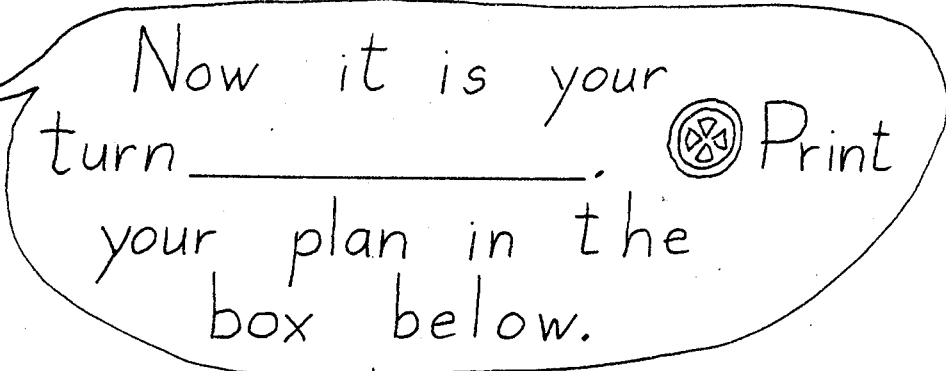 Now it is your
turn ____________. Print
your plan in the
box below.